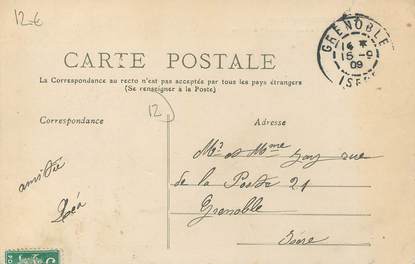 12.€
GRENOBLE
14 *
16-9
09
ISERE
CARTE POSTALE
La Correspondance au recto n'est pas acceptée par tous les pays étrangers
(Se renseigner à la Poste)
12
Correspondance
Adresse
amitié
Léa
Mr et Mme Jay rue
de la Poste 21
Grenoble
Isère